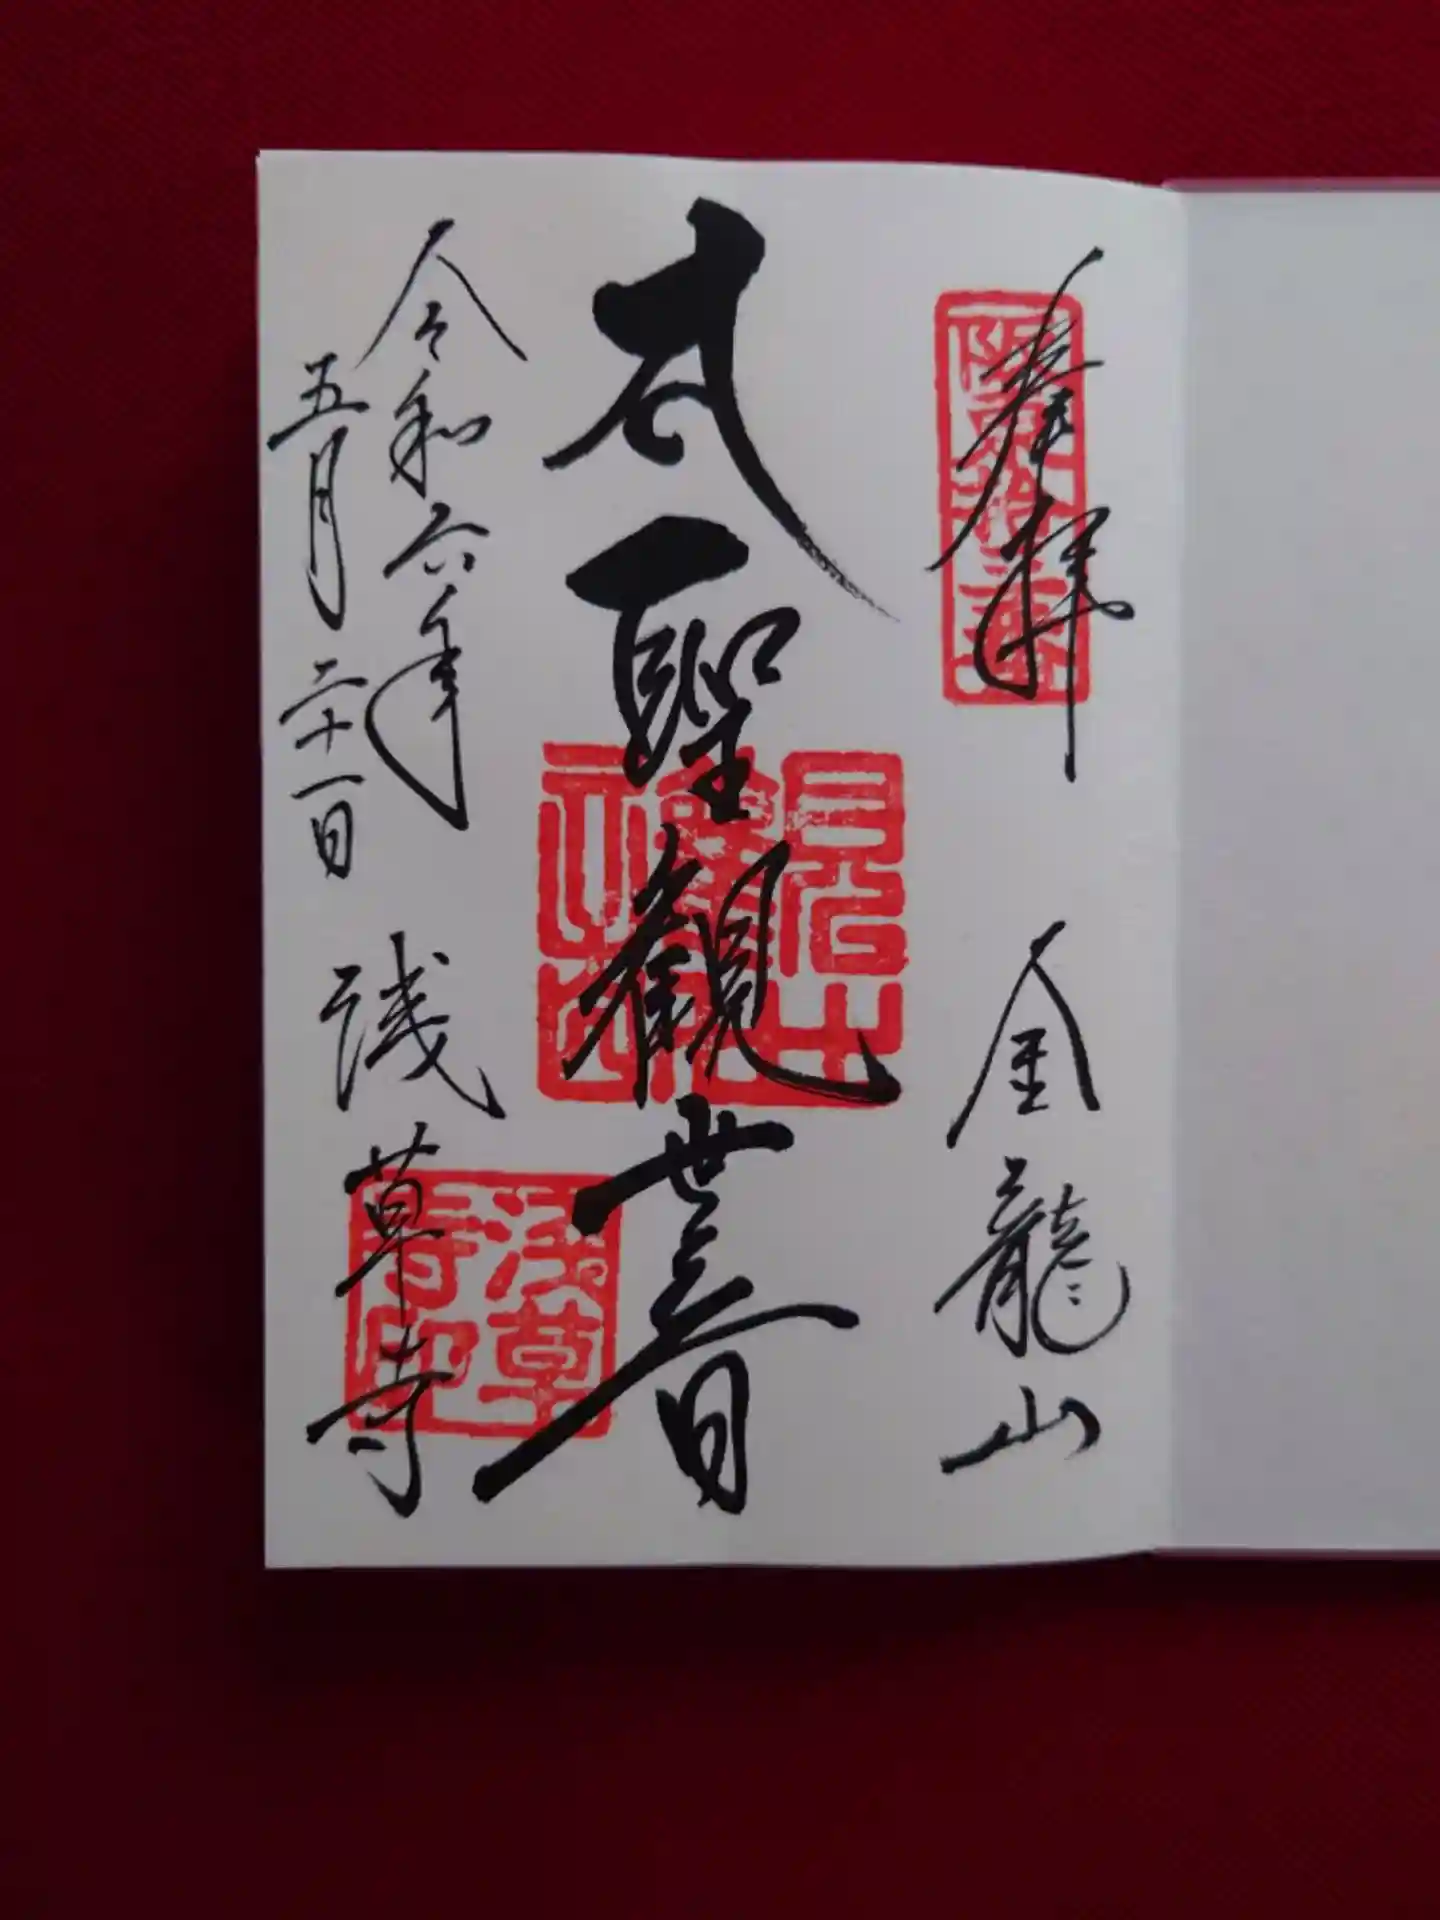 奉拝
金龍山
大聖観世音
令和六年
五月二十一日
浅草寺
浅草
寺印